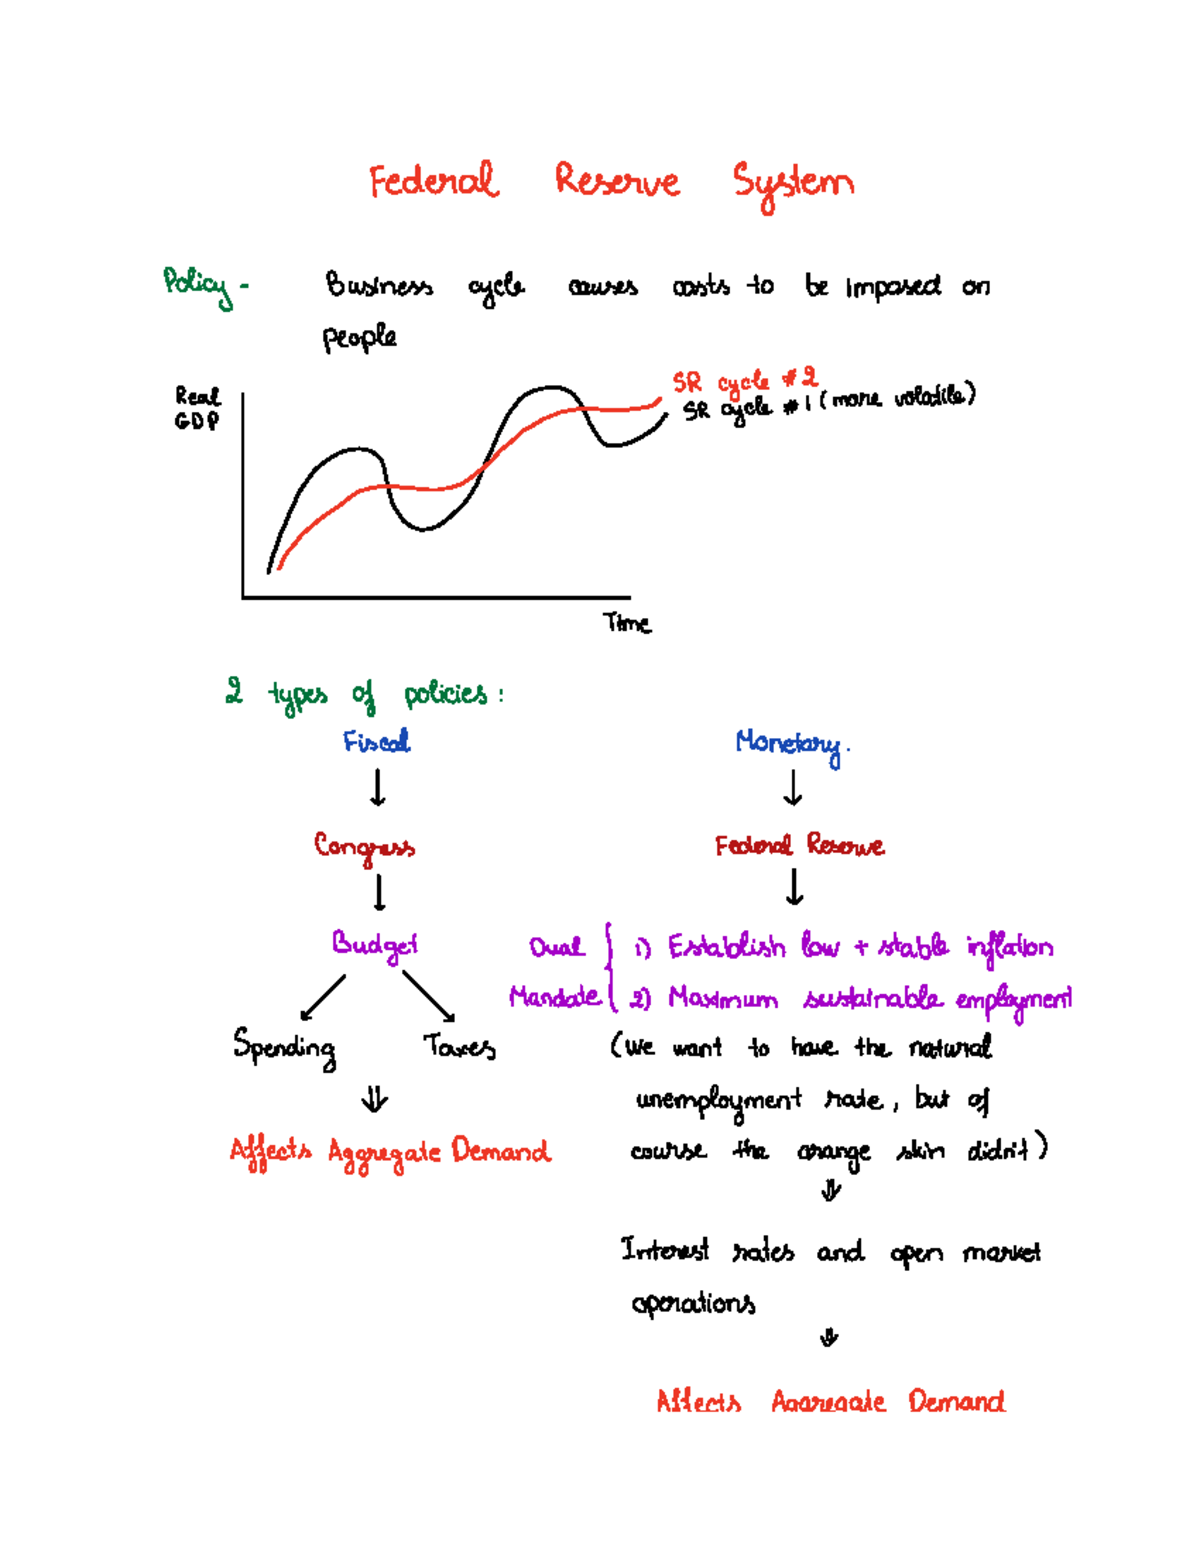 Federal Reserve System
Policy - Business cycle causes costs to be imposed on
people
Real
GDP
SR cycle #2
SR cycle #1 (more volatile)
Time
2 types of policies:
Fiscal Monetary.
Congress Federal Reserve
Budget Dual 1) Establish low + stable inflation
Mandate 2) Maximum sustainable employment
Spending Taxes (We want to have the natural
unemployment rate, but of
Affects Aggregate Demand course the orange skin didn't)
Interest rates and open market
operations
Affects Aggregate Demand